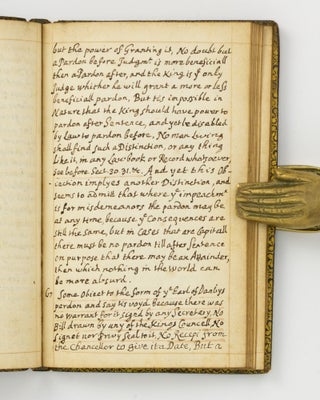 but the power of Granting it, No doubt but
a Pardon before Judgmt. is more beneficiall
then a Pardon after, and the King is ye only
Judge whither he will grant a more or less
beneficiall pardon, But tis impossible in
Nature that the King should have power to
pardon after Sentence, and yet be disabled
by Law to pardon before, No man Living
shall find such a Distinction, or any thing
like it, in any Law book or Record whatsoever,
see before Sect: 30 31. &c. And yet this Ob-
iection implyes another Distinction, and
seems to admit that where ye impeachmt.
is for misdemeanors the pardon may be
at any time, because ye Consequences are
still the same, but in Cases that are Capitall
there must be no pardon till after Sentence
on purpose that there may be an Attainder,
then which nothing in the World can
be more absurd.
67 Some Obiect to the form of ye Earl of Danbys
perdon and say tis voyd because there was
no Warrant for it signd by any Secretery, No
Bill drawn by any of the Kings Councell, No
Signet nor Privy Seal to it, No Recept from
the Chancellor to give it a Date, But a